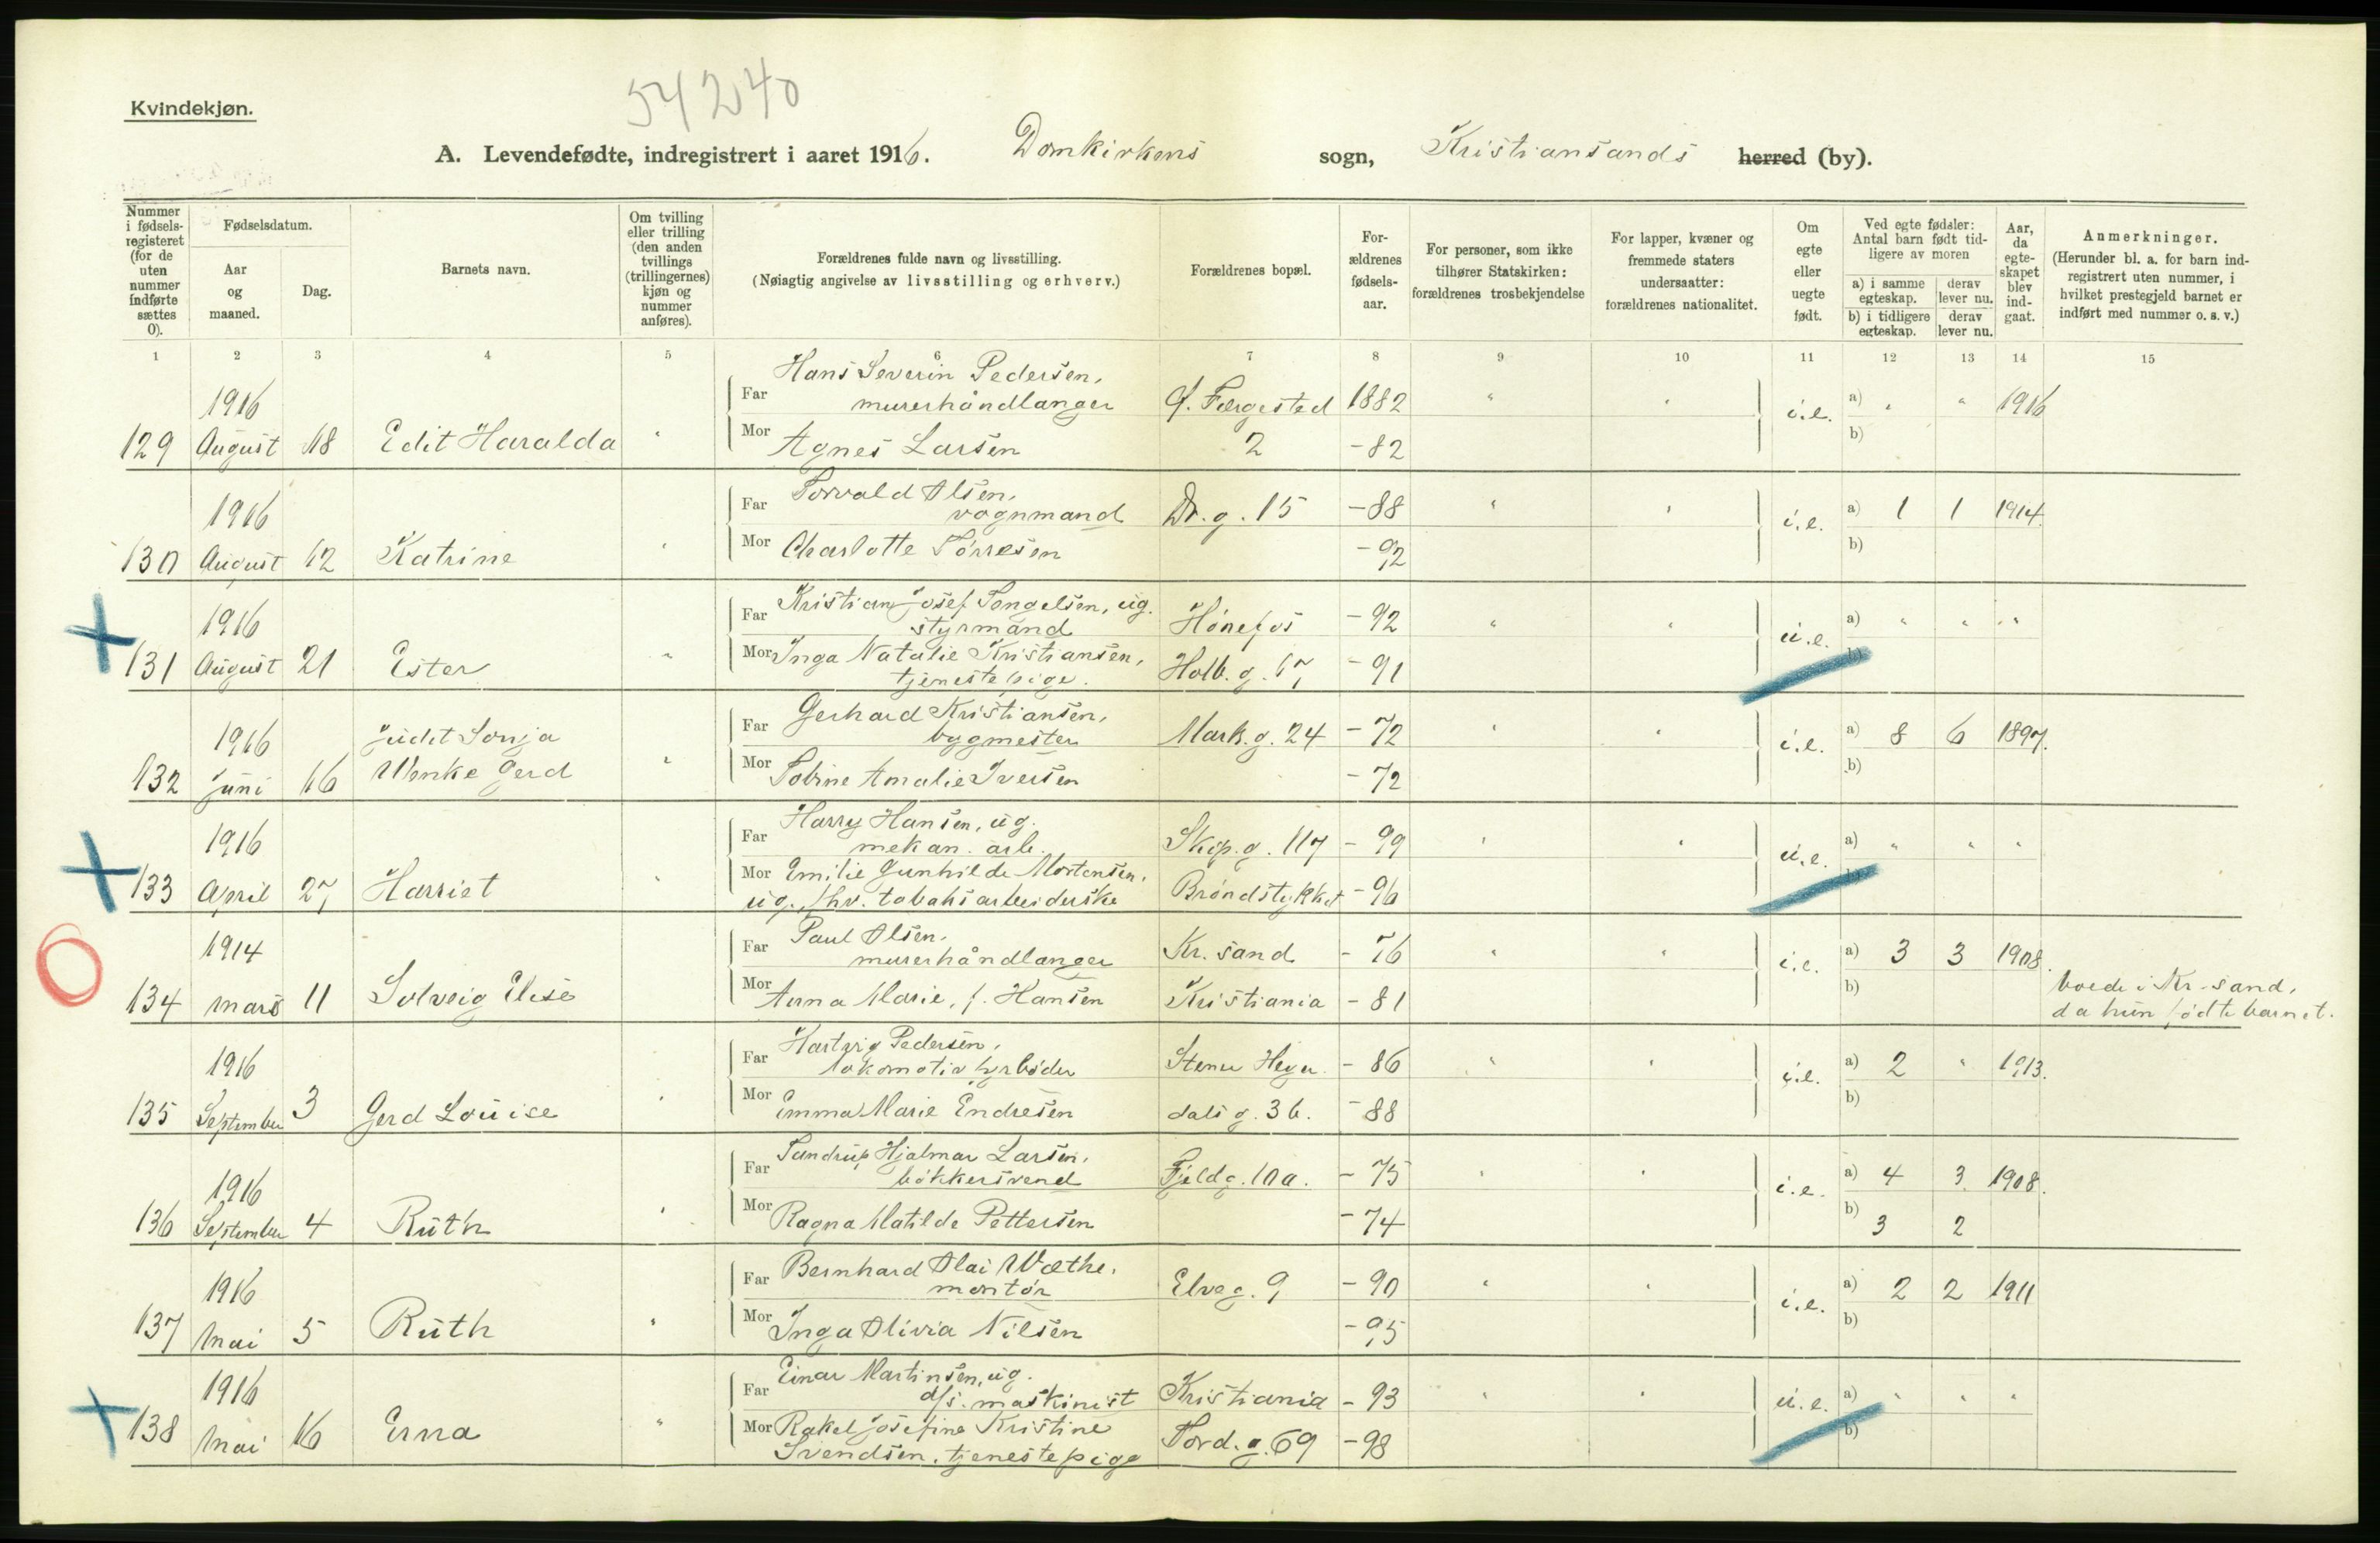 54240
Kvindekjøn.
A. Levendefødte, indregistrert i aaret 1916. Domkirkens sogn, Kristiansands herred (by).
Nummer i fødselsregisteret (for de uten nummer indførte sættes 0).
Fødselsdatum.
Aar og maaned.
Dag.
Barnets navn.
Om tvilling eller trilling (den anden tvillings (trillingernes) kjøn og nummer anføres).
Forældrenes fulde navn og livsstilling.
(Nøiagtig angivelse av livsstilling og erhverv.)
Forældrenes bopæl.
Forældrenes fødselsaar.
For personer, som ikke tilhører Statskirken: forældrenes trosbekjendelse
For lapper, kvæner og fremmede staters undersaatter: forældrenes nationalitet.
Om egte eller uegte født.
Ved egte fødsler: Antal barn født tidligere av moren
a) i samme egteskap. derav lever nu.
b) i tidligere egteskap. derav lever nu.
Aar, da egteskapet blev indgaat.
Anmerkninger.
(Herunder bl. a. for barn indregistrert uten nummer, i hvilket prestegjeld barnet er indført med nummer o. s. v.)
1 2 3 4 5 6 7 8 9 10 11 12 13 14 15
Hans Severin Pedersen,
1916 Far murerhåndlanger Færgested 1882 " " i.e. a) " " 1916
129 August 18 Edit Haralda " Mor Agnes Larsen 2 -82 b)
Torvald Olsen,
1916 Far vognmand Dr. g. 15 -88 " " i.e. a) 1 1 1914
130 August 12 Katrine " Mor Charlotte Tørresen -92 b)
Kristian Josef Tengelsen, ug.
1916 Far styrmand Hønefos -92 " " u.e. a) " " "
131 August 21 Ester " Mor Inga Natalie Kristiansen, Holb. g. 67 -91 b)
tjenestepige.
Gerhard Kristiansen,
1916 Judit Sonja Far bygmester Mark. g. 24 -72 " " i.e. a) 8 6 1897.
132 Juni 16 Wenke Gerd " Mor Tobine Amalie Iversen -72 b)
Harry Hansen, ug.
1916 Far mekan. arb. Skip. g. 117 -99 " " u.e. a) " " "
133 April 27 Harriet " Mor Emilie Gunhilde Mortensen, Brøndstykket -96 b)
ug. fhv. tobaksarbeiderske
Paul Olsen,
1914 Far murerhåndlanger Kr. sand -76 " " i.e. a) 3 3 1908.
134 Mars 11 Solveig Elise Mor Anna Marie, f. Hansen Kristiania -81 b) boede i Kr.sand,
da hun fødte barnet.
Hartvig Pedersen,
1916 Far lokomotivfyrbøder Stener Heyer- -86 " " i.e. a) 2 " 1913.
135 September 3 Gerd Louise " Mor Emma Marie Endresen dals g. 36. -88 b)
Tandrup Hjalmar Larsen,
1916 Far bøkkersvend Fjeldg. 10a. -75 " " i.e. a) 4 3 1908.
136 September 4 Ruth " Mor Ragna Matilde Pettersen -74 b) 3 2
1916 Far Bernhard Olai Wæthe, Elveg. 9 -90 " " i.e. a) 2 2 1911
montør
137 Mai 5 Ruth " Mor Inga Olivia Nilsen -95 b)
Einar Martinsen, ug.
1916 Far d/s. maskinist Kristiania -93 " " u.e. a) " " "
138 Mai 16 Erna " Mor Rakel Josefine Kristine Tord. g. 69 -98 b)
Svendsen, tjenestepige